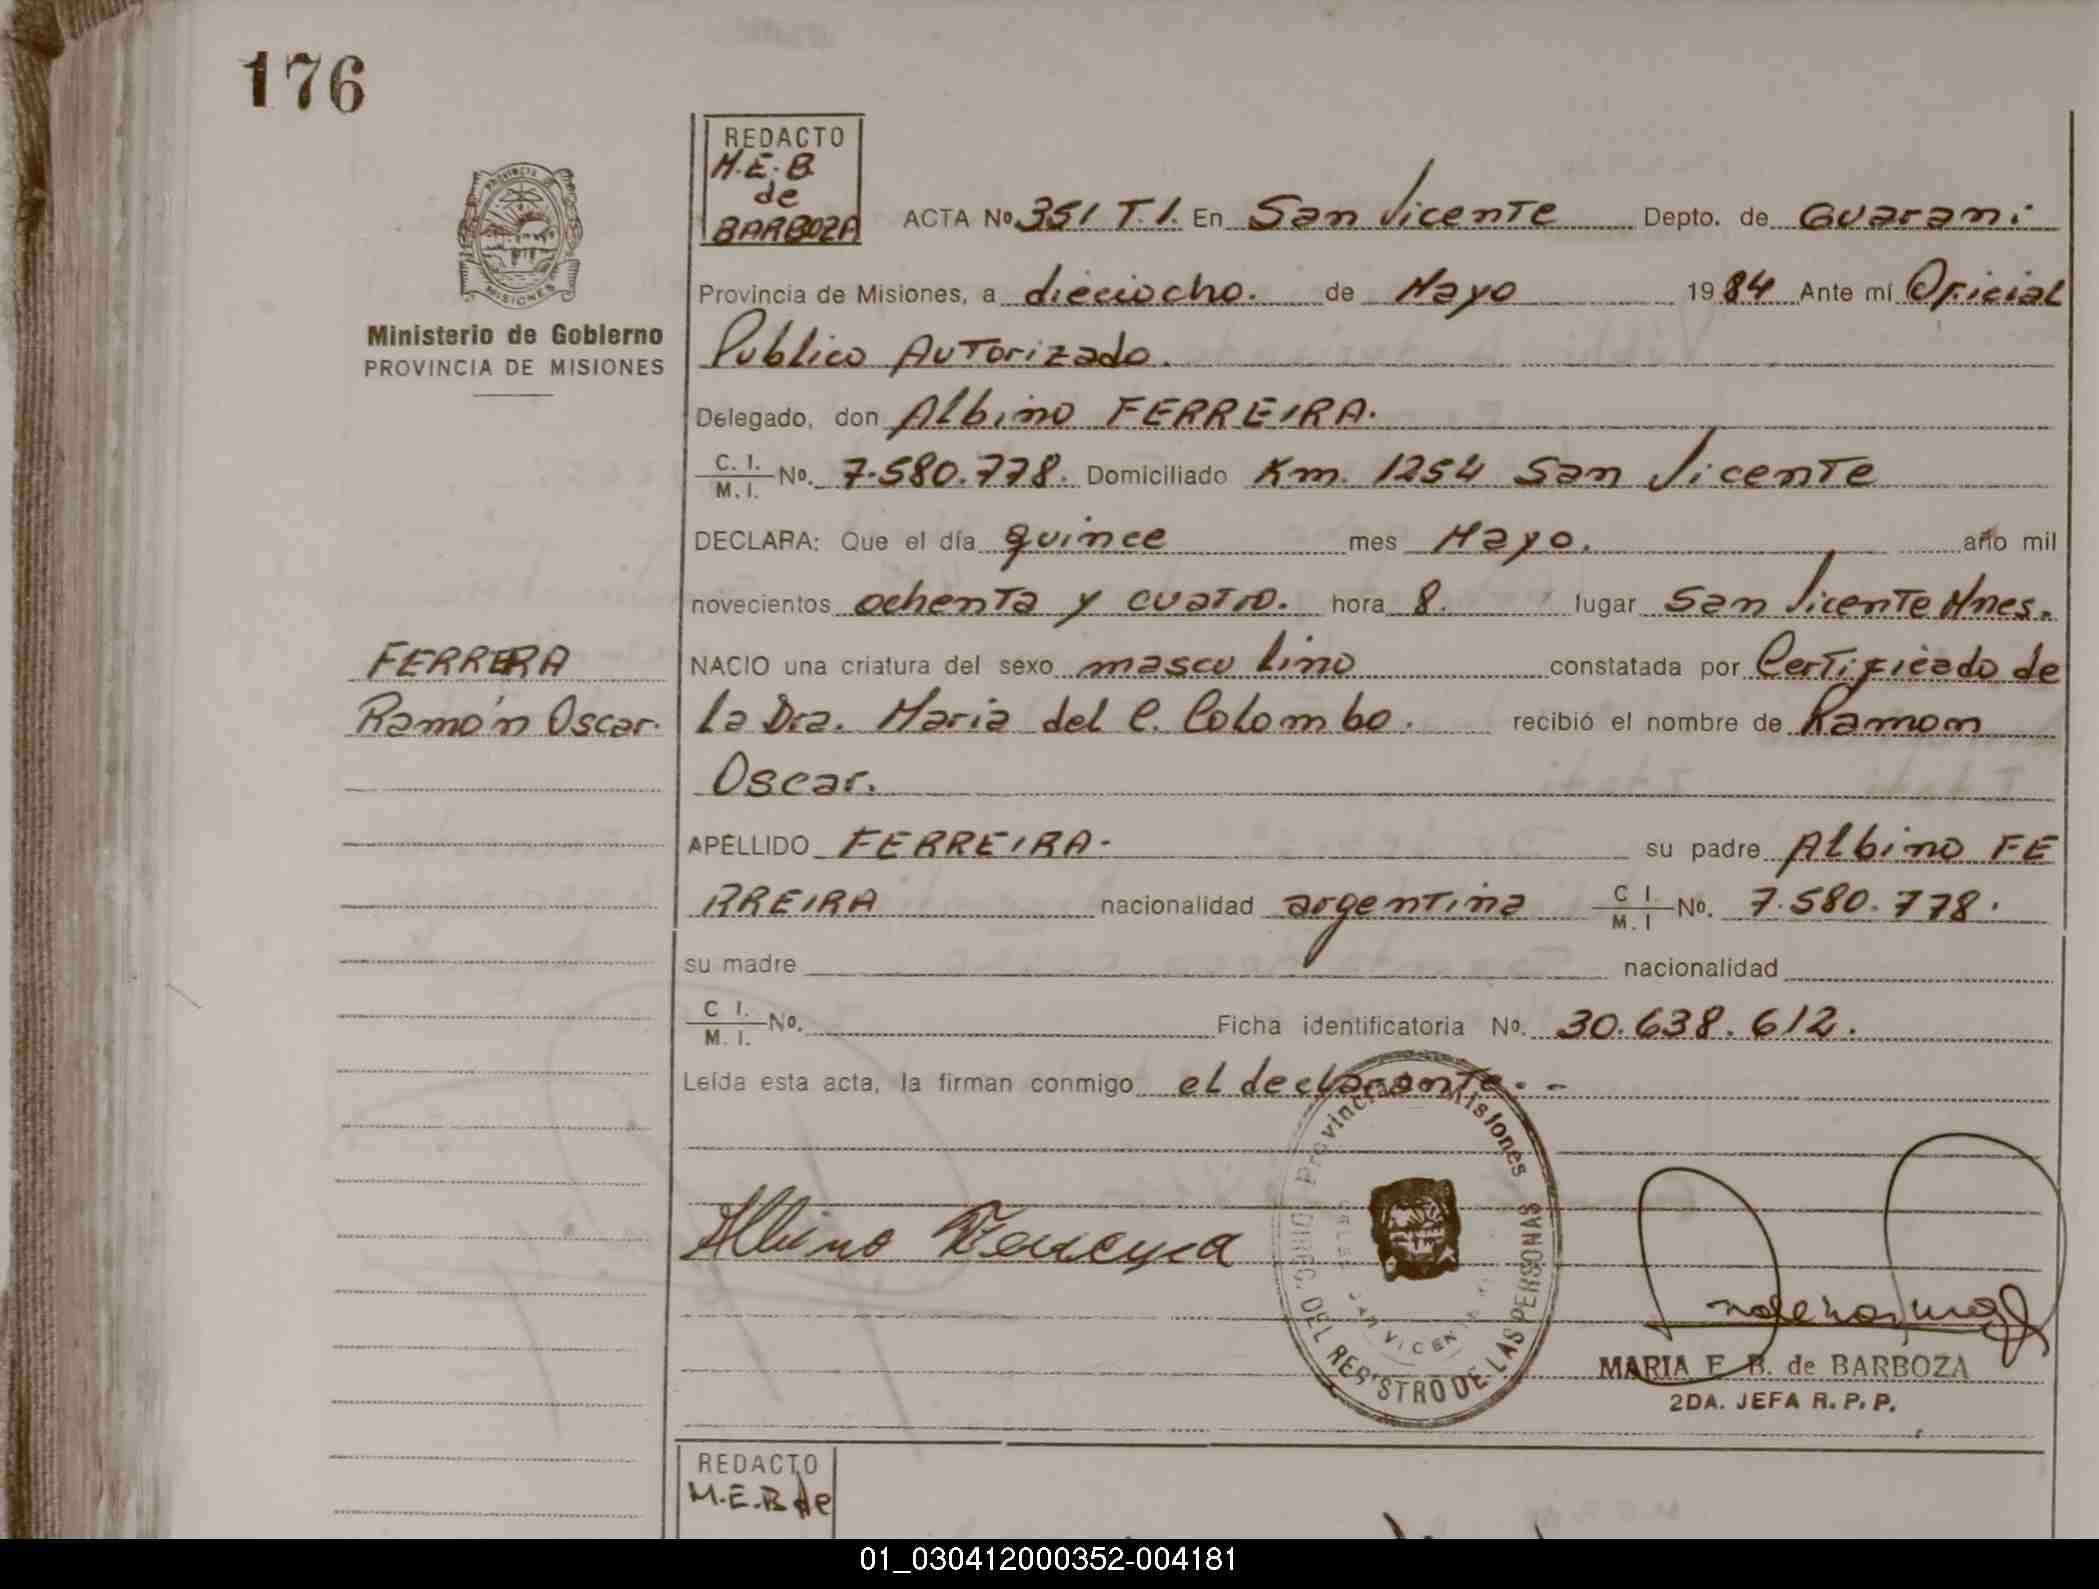 176
REDACTO
M.E.B
de
BARBOZA
ACTA Nº 351 T.I. En San Vicente Depto. de Guarani
Provincia de Misiones, a dieciocho. de Mayo 1984 Ante mí Oficial
Publico Autorizado.
Delegado, don Albino FERREIRA.
C. I. / M. I. Nº. 7.580.778. Domiciliado Km. 1254 San Vicente
DECLARA: Que el día quince mes Mayo. año mil
novecientos ochenta y cuatro. hora 8. lugar San Vicente Mnes.
NACIO una criatura del sexo masculino constatada por Certificado de
la Dra. Maria del C. Colombo. recibió el nombre de Ramon
Oscar.
APELLIDO FERREIRA- su padre Albino FE
RREIRA nacionalidad argentina C I. / M. I Nº. 7.580.778.
su madre nacionalidad
C I. / M. I. Nº. Ficha identificatoria Nº. 30.638.612.
Leída esta acta, la firman conmigo el declarante. -
PROVINCIA DE MISIONES
Ministerio de Gobierno
PROVINCIA DE MISIONES
FERREIRA
Ramón Oscar.
Albino Ferreyra
Provincia de Misiones
DIREC. DEL REGISTRO DE LAS PERSONAS
SAN VICENTE
MARIA E. B. de BARBOZA
2DA. JEFA R. P. P.
REDACTO
M.E.B de
01_030412000352-004181